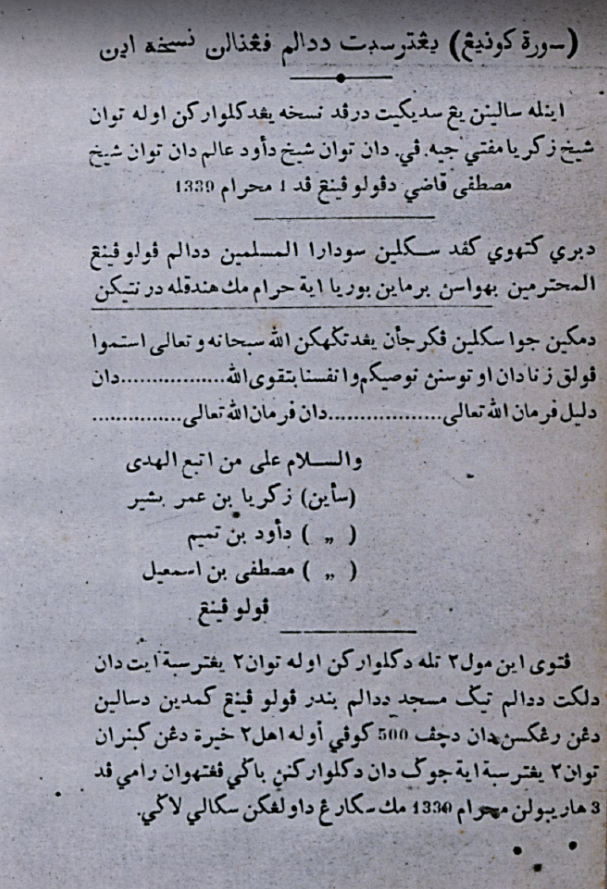 (سورة كونيڠ) يڠترسبت ددالم ڤڠنالن نسخه اين
اينله سالينن يڠ سديكيت درڤد نسخه يڠدكلواركن اوله توان
شيخ زكريا مفتي جيه. ڤي. دان توان شيخ دأود عالم دان توان شيخ
مصطفى قاضي دڤولو ڤينڠ ڤد 1 محرام 1339
دبري كتهوي كڤد سكلين سودارا المسلمين ددالم ڤولو ڤينڠ
المحترمين بهواسن برماين بوريا اية حرام مك هندقله درنتيكن
دمكين جوا سكلين ڤكرجأن يڠدتڬهكن الله سبحانه و تعالى استموا
ڤولق زنا دان او توسنن نوصيكم وا نفسنا بتقوى الله..................دان
دليل فرمان الله تعالى....................دان فرمان الله تعالى................
والسلام على من اتبع الهدى
(سأين) زكريا بن عمر بشير
( „ ) دأود بن تميم
( „ ) مصطفى بن اسمعيل
ڤولو ڤينڠ
ڤتوى اين مول٢ تله دكلواركن اوله توان٢ يڠترسبة ايت دان
دلكت ددالم تيڬ مسجد ددالم بندر ڤولو ڤينڠ كمدين دسالين
دڠن رڠكسن دان دچڤ 500 كوڤي أوله اهل٢ خيرة دڠن كبنران
توان٢ يڠترسبة اية جوڬ دان دكلواركنن باڬي ڤڠتهوان رامي ڤد
3 هاريبولن محرام 1330 مك سكارڠ داولڠكن سكالي لاڬي.